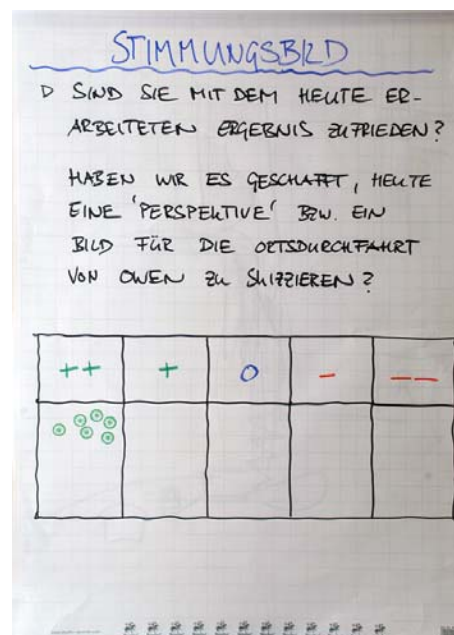 STIMMUNGSBILD
▷ SIND SIE MIT DEM HEUTE ER-
ARBEITETEN ERGEBNIS ZUFRIEDEN?
HABEN WIR ES GESCHAFFT, HEUTE
EINE 'PERSPEKTIVE' BZW. EIN
BILD FÜR DIE ORTSDURCHFAHRT
VON OWEN ZU SKIZZIEREN?
++ + O - --